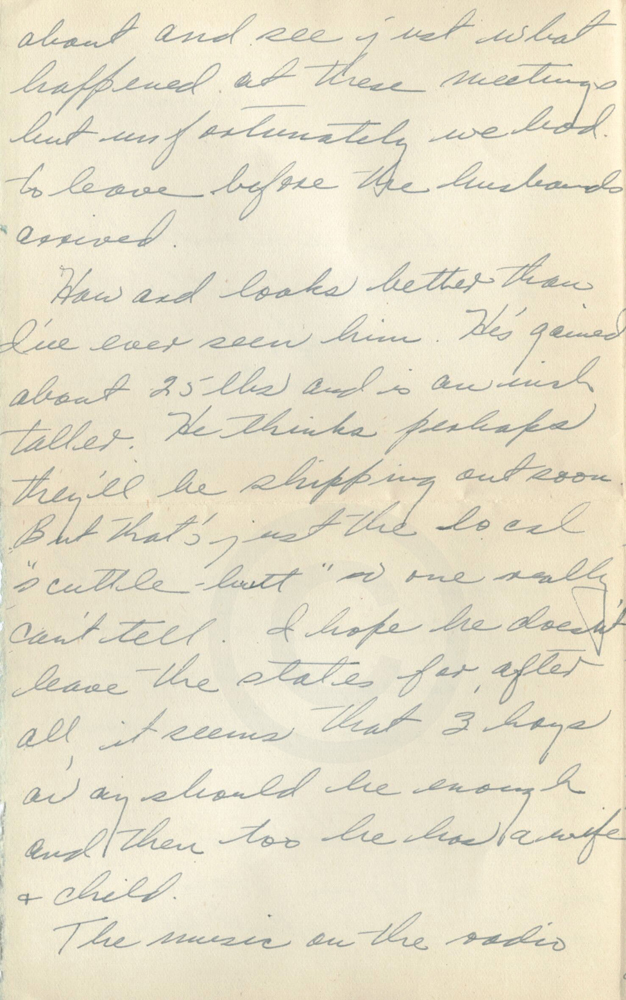 about and see just what
happened at these meetings
but unfortunately we had
to leave before the husbands
arrived.
Howard looks better than
I've ever seen him. He's gained
about 25 lbs and is an inch
taller. He thinks perhaps
they'll be shipping out soon.
But that's just the local
"scuttle-butt" so one really
can't tell. I hope he doesn't
leave the states for after
all, it seems that 3 boys
away should be enough
and then too he has a wife
& child.
The music on the radio